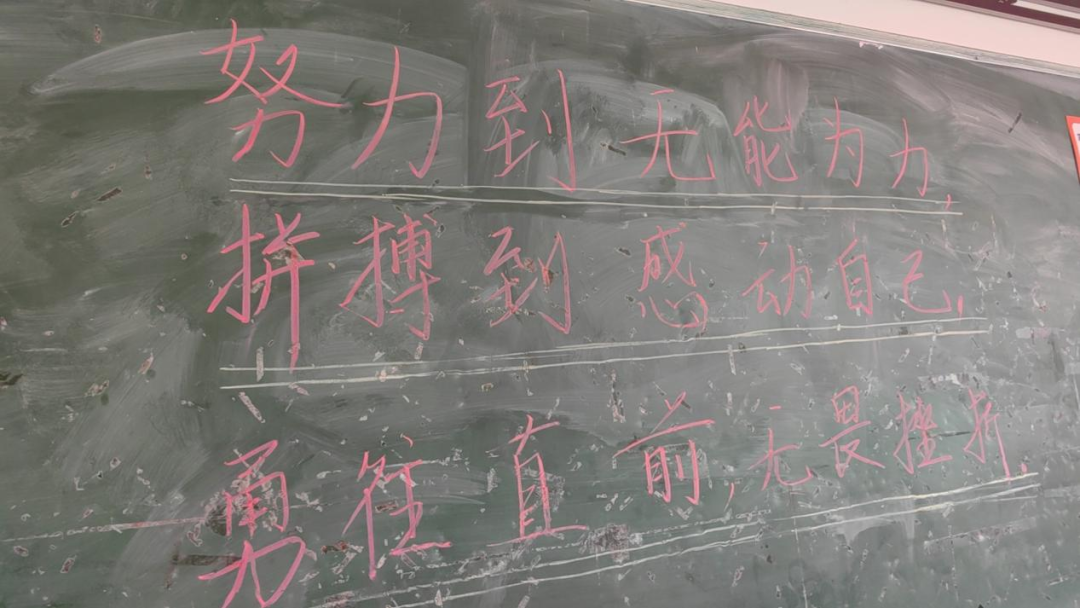 努力到无能为力，
拼搏到感动自己，
勇往直前，无畏挫折.